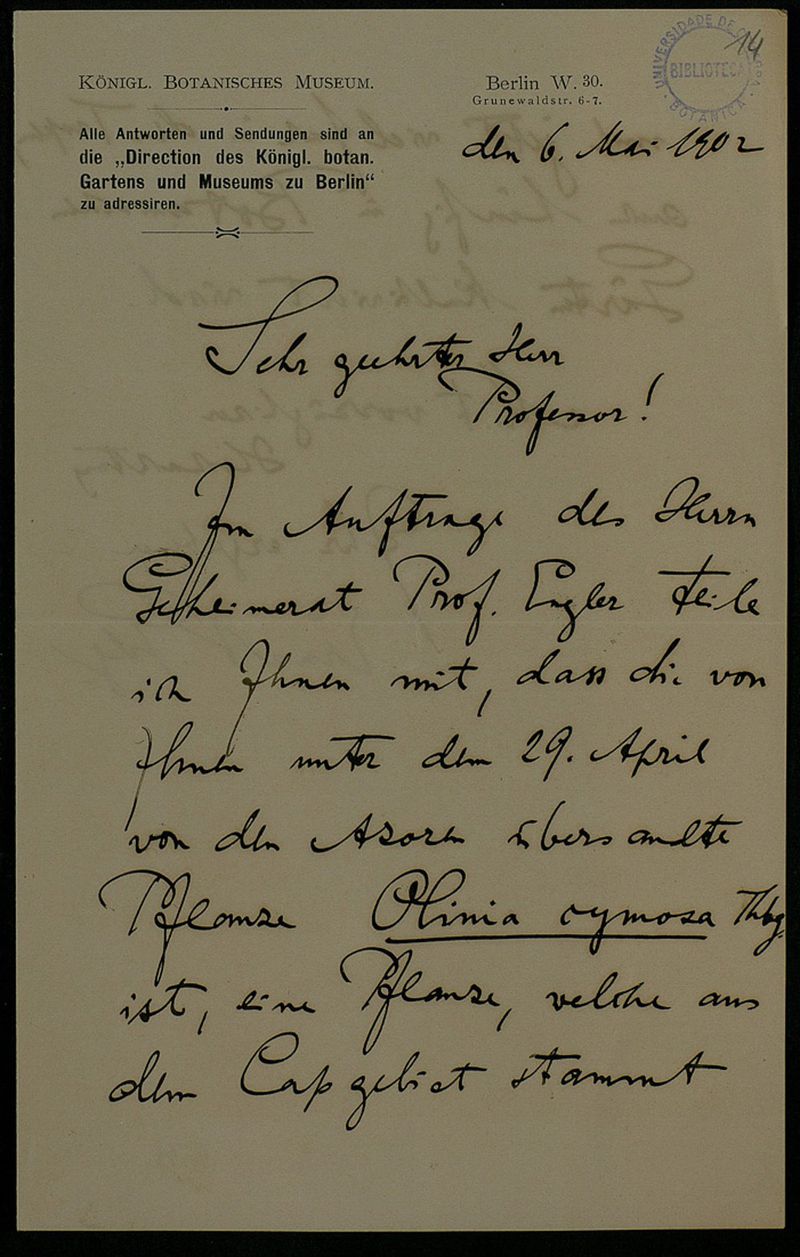 14
UNIVERSIDADE DE COIMBRA
BIBLIOTECA
BOTANICA
KÖNIGL. BOTANISCHES MUSEUM.
Alle Antworten und Sendungen sind an
die „Direction des Königl. botan.
Gartens und Museums zu Berlin“
zu adressiren.
Berlin W. 30.
Grunewaldstr. 6-7.
den 6. Mai 1902
Sehr geehrter Herr
Professor!
Im Auftrage des Herrn
Geheimerat Prof. Engler teile
ich Ihnen mit, dass die von
Ihnen unter dem 29. April
von den Azoren übersandte
Pflanze Olinia cymosa Thbg.
ist, eine Pflanze, welche aus
dem Capgebiet stammt